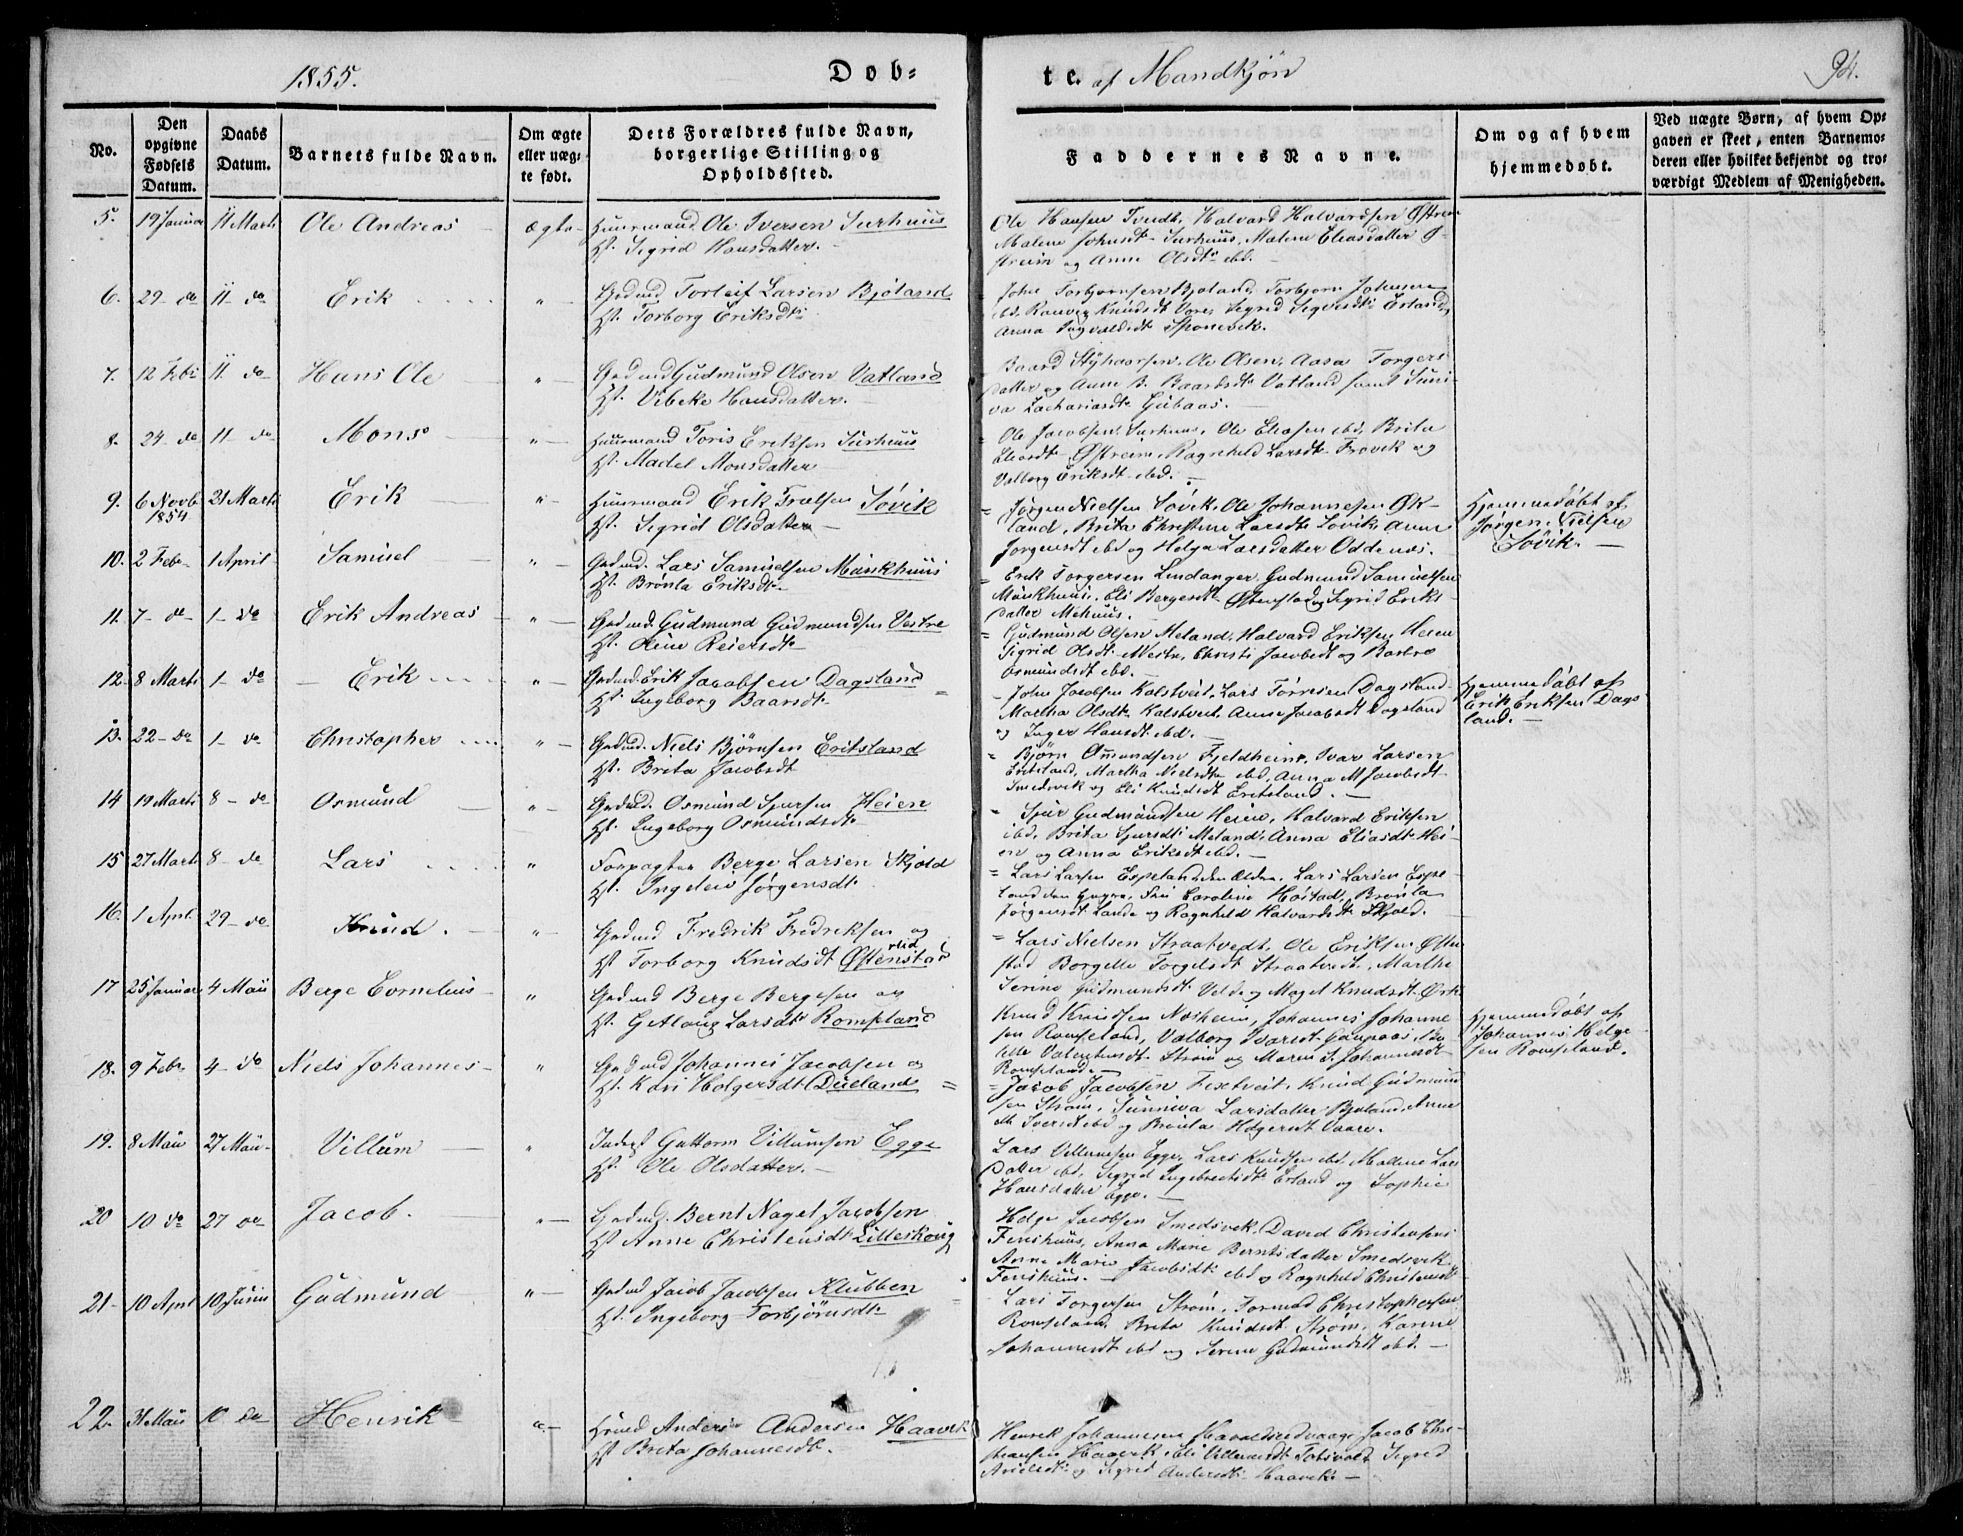 1855.
Døb=
te. af Mandkjøn
94.
No.
Den opgivne Fødsels Datum.
Daabs Datum.
Barnets fulde Navn.
Om ægte eller uægte født.
Dets Forældres fulde Navn, borgerlige Stilling og Opholdssted.
Faddernes Navne.
Om og af hvem hjemmedøbt.
Ved uægte Børn, af hvem Opgaven er skeet, enten Barnemoderen eller hvilket bekjendt og troværdigt Medlem af Menigheden.
5. 19 Januar 11 Marts Ole Andreas ægte
Huusmand Ole Iversen Surhuus
H. Sigrid Hansdatter.
Ole Hansen Tvedt, Halvard Halvardsen Østreim
Malene Johnsdt Surhuus, Malene Eliasdatter Ø-
streim og Anne Olsdt ibd.
6. 29 do 11 do Erik
Grdmd Torleif Larsen Bjøland
H. Torborg Eriksdt
John Torbjørnsen Bjoland, Torbjørn Johnsen
ibd. Knudsdt Vore, Sigrid Erland,
Anna Ingvaldsdt
7. 12 Febr 11 do Hans Ole
Grdmd Gudmund Olsen Vatland
H. Vibeke Hansdatter.
Baard Ole Olsen, Aasa Torgers
datter og Anne B. Baardsdt Vatland samt Suni-
va Zachariasdt
8. 24 do 11 do Mons
Huusmand Toris Eriksen Surhuus
H. Madel Monsdatter
Ole Jacobsen Surhuus, Ole Eliasen ibd, Brita
Eliasdt Østreim, Ragnhild Larsdt Frøvik og
Valborg Eriksdt ibd.
9. 6 Novb 1854 21 Marts Erik
Huusmand Erik Søvik
H. Sigrid Olsdatter
Jørgen Nielsen Søvik, Ole Johannesen Øk-
land, Brita Christine Larsdt Søvik, Anne
Jørgensdt ibd og Helga Larsdatter Oddenes.
Hjemmedøbt af
Jørgen Nielsen
Søvik.
10. 2 Febr 1 April Samuel
Grdmd. Lars Samuelsen Munkhuus
H. Brønla Eriksdt
Erik Torgersen Lindanger, Gudmund Samuelsen
Munkhuus, Eli Bergesdt Østenstad, Sigrid Eriks
datter Mehuus.
11. 7 do 1 do Erik Andreas
Grdmd. Gudmund Gudmundsen Vestre
H. Oline Reiersdt
Gudmund Olsen Meland, Halvard Eriksen Heien
Sigrid Olsdt Vestre, Christi Jacobsdt og Barbro
Osmundsdt ibd.
12. 8 Marts 1 do Erik
Grdmd. Erik Jacobsen Dagsland
H. Ingeborg Baarsdt
John Jacobsen Kalstveit, Lars Tørresen Dagsland
Martha Olsdt Kalstveit, Anne Jacobsdt Dagsland
og Inger Hansdt ibd.
Hjemmedøbt af
Erik Eriksen Dags
land.
13. 22 do 1 do Christopher
Grdmd. Niels Bjørnsen Eritsland
H. Brita Jacobsdt
Bjørn Omundsen Fjeldheim, Ivar Larsen
Eritsland, Martha Nielsdt ibd, Anna M Jacobsdt
Smedsvik og Eli Knudsdt Eritsland.
14 19 Marts 8 do Osmund
Grdmd. Osmund Sjursen Heien
H. Ingeborg Osmundsdt
Sjur Gudmundsen Heien, Halvard Eriksen
ibd, Brita Sjursdt Meland, Anna Eliasdt Hei-
en og Anna Eriksdt ibd.
15 27 Marts 8 do Lars
Forpagter Berge Larsen Skjold
H. Ingeleiv Jørgensdt
Lars Larsen Espeland den Ældre, Lars Larsen Espe
land den Yngre, Caroline Høistad, Brønla
Jørgensdt Lande og Ragnhild Halvardsdt Skjold.
16. 1 April 29 do Knud.
Grdmd Fredrik Fredriksen og
H Torborg Knudsdt Østenstad
Lars Nielsen Straatvedt, Ole Eriksen Østen
stad Borgelle Torgelsdt Straatvedt, Marthe
Serine Gudmundsdt Velde og Maget Knudsdt
17 25 Januar 4 Mai Berge Cornelius
Grdmd Berge Bergesen og
H. Getlaug Larsdt Rompland
Knud Knudsen Nosheim, Johannes Johanne
sen Romseland, Valborg Ivarsdt
Valentinsdt Strøm og Maren S. Johannesdt
Romseland.
Hjemmedøbt af
Johannes Helge
sen Romseland.
18. 9 Febr 4 do Niels Johannes
Grdmd Johannes Jacobsen og
H. Kari Holgersdt Dueland
Jacob Jacobsen Fixtveit, Knud Gudmund
sen Strøm, Sunniva Larsdatter Bjoland, Anne
M. Iversdt ibd og Brønla Holgersdt Vaare.
19. 8 Mai 27 Mai Villum
Inderst Guttorm Villumsen Egge
H. Ole Olsdatter.
Lars Villumsen Egge, Lars Knudsen ibd, Malene Lars
datter ibd, Sigrid Ingebretsdt Erland og Sophie
Hansdatter Egge.
20 10 do 27 do Jacob.
Grdmd. Bernt Nagel Jacobsen
H Anne Christensdt Lilleskoug
Helge Jacobsen Smedsvik, David Christensen
Ferishuus, Anna Marie Berntsdatter Smedsvik
Anne Marie Jacobsdt ibd og Ragnhild Christensdt
Ferishuus.
21 10 April 10 Juni Gudmund
Grdmd Jacob Jacobsen Klubben
H. Ingeborg Torbjørnsdt
Lars Torgersen Strøm, Tormod Christophersen
Romseland, Brita Knudsdt Strøm, Karine
Johannesdt ibd og Serine Gudmundsdt ibd.
22. 31 Mai 10 do Henrik
Anders Andersen Haavik
H Brita Johannesdt.
Henrik Johannesen Haraldseidvaage, Jacob Chri-
stiansen Haavik, Eli Villumsdt Sigrid
og Sigrid Andersdt Haavik